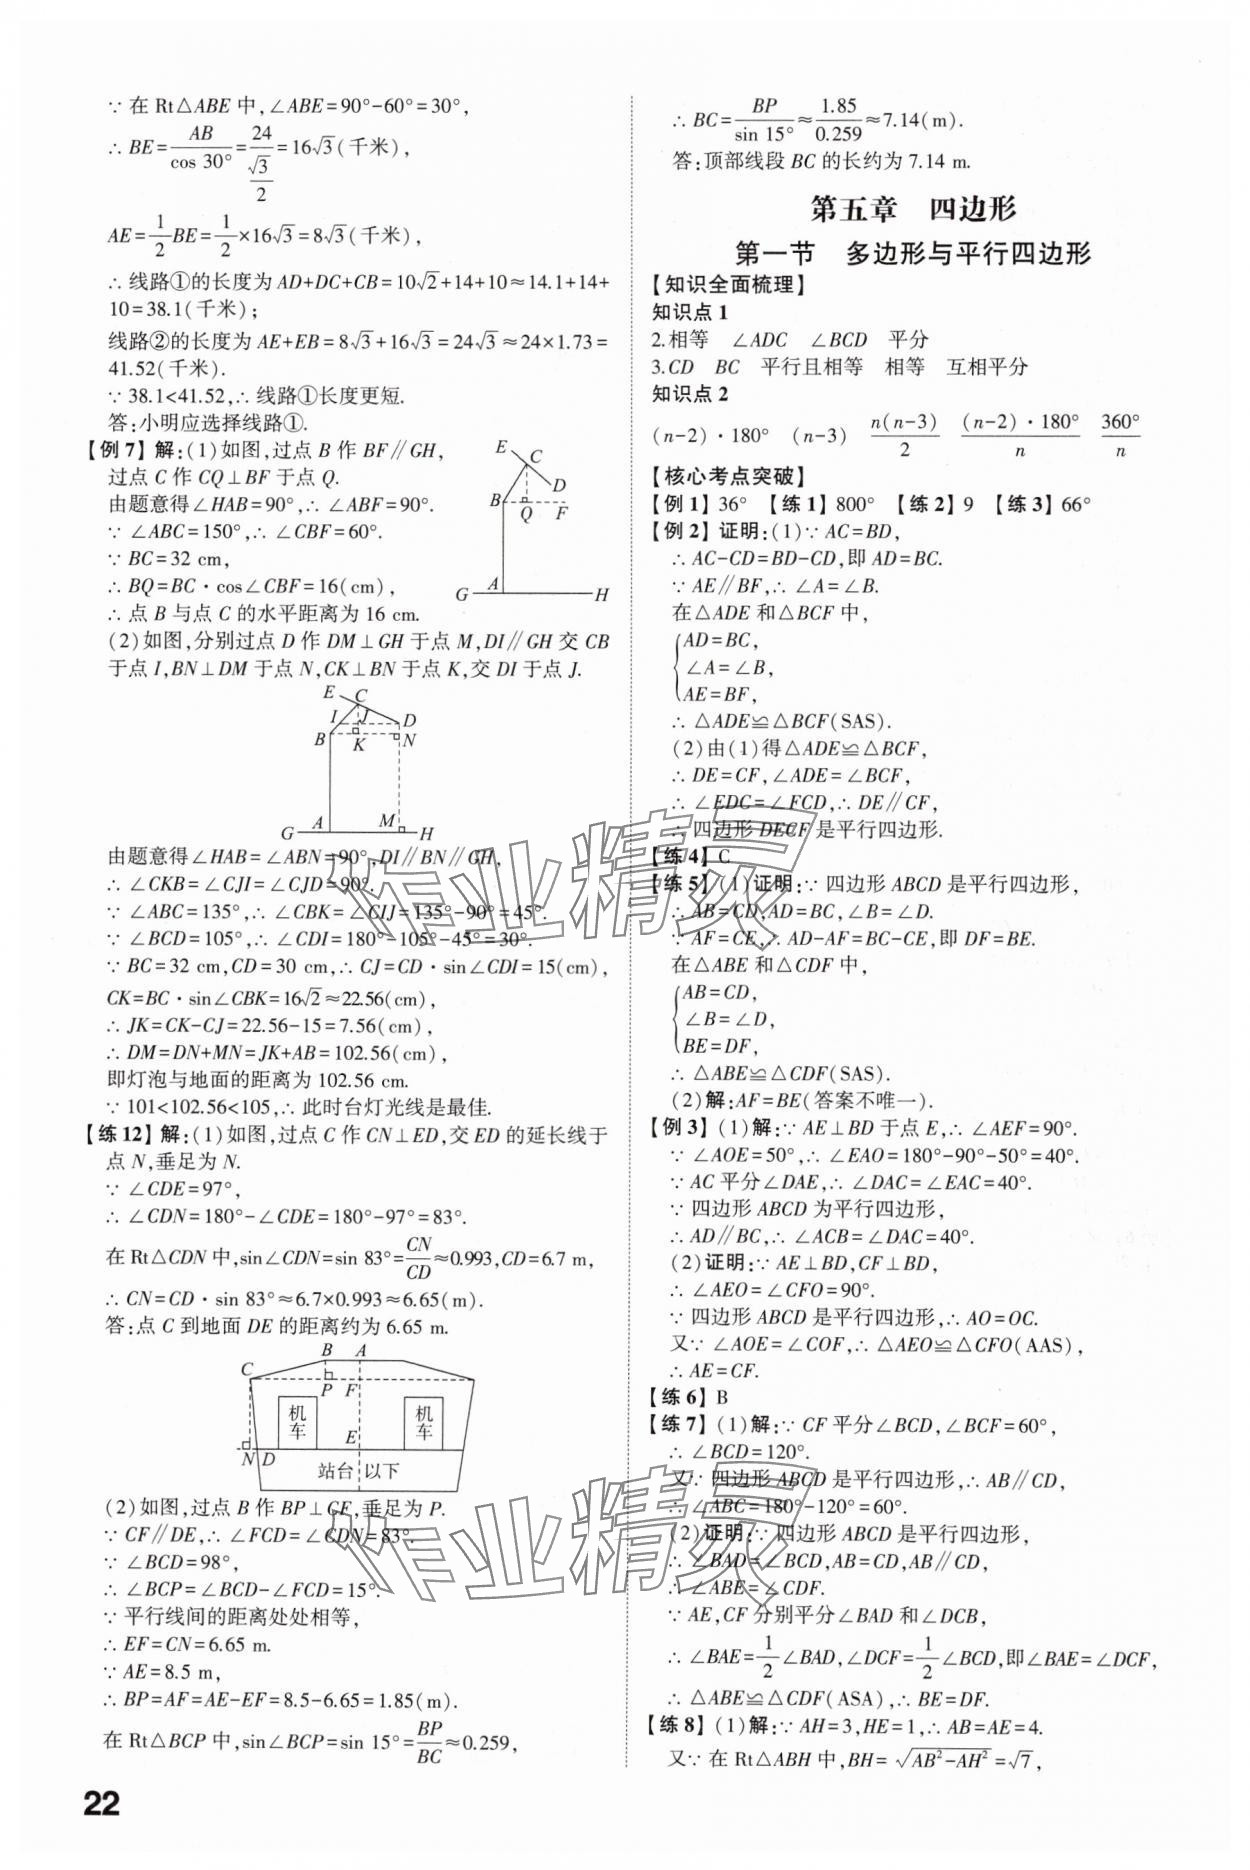 ∵ 在 Rt△ABE 中,∠ABE=90°-60°=30°,
∴ BE=AB/cos 30°=24/(√3/2)=16√3(千米),
AE=1/2BE=1/2×16√3=8√3(千米),
∴ 线路①的长度为 AD+DC+CB=10√2+14+10≈14.1+14+
10=38.1(千米);
线路②的长度为 AE+EB=8√3+16√3=24√3≈24×1.73=
41.52(千米).
∵ 38.1<41.52,∴ 线路①长度更短.
答:小明应选择线路①.
【例 7】解:(1)如图,过点 B 作 BF∥GH,
过点 C 作 CQ⊥BF 于点 Q.
由题意得∠HAB=90°,∴ ∠ABF=90°.
∵ ∠ABC=150°,∴ ∠CBF=60°.
∵ BC=32 cm,
∴ BQ=BC·cos∠CBF=16(cm),
∴ 点 B 与点 C 的水平距离为 16 cm.
E C D B Q F G A H
(2)如图,分别过点 D 作 DM⊥GH 于点 M,DI∥GH 交 CB
于点 I,BN⊥DM 于点 N,CK⊥BN 于点 K,交 DI 于点 J.
E C I J D B K N G A M H
由题意得∠HAB=∠ABN=90°,DI∥BN∥GH,
∴ ∠CKB=∠CJI=∠CJD=90°.
∵ ∠ABC=135°,∴ ∠CBK=∠CIJ=135°-90°=45°.
∵ ∠BCD=105°,∴ ∠CDI=180°-105°-45°=30°.
∵ BC=32 cm,CD=30 cm,∴ CJ=CD·sin∠CDI=15(cm),
CK=BC·sin∠CBK=16√2≈22.56(cm),
∴ JK=CK-CJ=22.56-15=7.56(cm),
∴ DM=DN+MN=JK+AB=102.56(cm),
即灯泡与地面的距离为 102.56 cm.
∵ 101<102.56<105,∴ 此时台灯光线是最佳.
【练 12】解:(1)如图,过点 C 作 CN⊥ED,交 ED 的延长线于
点 N,垂足为 N.
∵ ∠CDE=97°,
∴ ∠CDN=180°-∠CDE=180°-97°=83°.
在 Rt△CDN 中,sin∠CDN=sin 83°=CN/CD≈0.993,CD=6.7 m,
∴ CN=CD·sin 83°≈6.7×0.993≈6.65(m).
答:点 C 到地面 DE 的距离约为 6.65 m.
B A
C P F
机车 E 机车
N D
站台 以下
(2)如图,过点 B 作 BP⊥CF,垂足为 P.
∵ CF∥DE,∴ ∠FCD=∠CDN=83°.
∵ ∠BCD=98°,
∴ ∠BCP=∠BCD-∠FCD=15°.
∵ 平行线间的距离处处相等,
∴ EF=CN=6.65 m.
∵ AE=8.5 m,
∴ BP=AF=AE-EF=8.5-6.65=1.85(m).
在 Rt△BCP 中,sin∠BCP=sin 15°=BP/BC≈0.259,
22
∴ BC=BP/sin 15°≈1.85/0.259≈7.14(m).
答:顶部线段 BC 的长约为 7.14 m.
第五章 四边形
第一节 多边形与平行四边形
【知识全面梳理】
知识点 1
2.相等 ∠ADC ∠BCD 平分
3.CD BC 平行且相等 相等 互相平分
知识点 2
(n-2)·180° (n-3) n(n-3)/2 (n-2)·180°/n 360°/n
【核心考点突破】
【例 1】36° 【练 1】800° 【练 2】9 【练 3】66°
【例 2】证明:(1)∵ AC=BD,
∴ AC-CD=BD-CD,即 AD=BC.
∵ AE∥BF,∴ ∠A=∠B.
在△ADE 和△BCF 中,
AD=BC,
∠A=∠B,
AE=BF,
∴ △ADE≌△BCF(SAS).
(2)由(1)得△ADE≌△BCF,
∴ DE=CF,∠ADE=∠BCF,
∴ ∠EDC=∠FCD,∴ DE∥CF,
∴ 四边形 DECF 是平行四边形.
【练 4】C
【练 5】(1)证明:∵ 四边形 ABCD 是平行四边形,
∴ AB=CD,AD=BC,∠B=∠D.
∵ AF=CE,∴ AD-AF=BC-CE,即 DF=BE.
在△ABE 和△CDF 中,
AB=CD,
∠B=∠D,
BE=DF,
∴ △ABE≌△CDF(SAS).
(2)解:AF=BE(答案不唯一).
【例 3】(1)解:∵ AE⊥BD 于点 E,∴ ∠AEF=90°.
∵ ∠AOE=50°,∴ ∠EAO=180°-90°-50°=40°.
∵ AC 平分∠DAE,∴ ∠DAC=∠EAC=40°.
∵ 四边形 ABCD 为平行四边形,
∴ AD∥BC,∴ ∠ACB=∠DAC=40°.
(2)证明:∵ AE⊥BD,CF⊥BD,
∴ ∠AEO=∠CFO=90°.
∵ 四边形 ABCD 是平行四边形,∴ AO=OC.
又∵ ∠AOE=∠COF,∴ △AEO≌△CFO(AAS),
∴ AE=CF.
【练 6】B
【练 7】(1)解:∵ CF 平分∠BCD,∠BCF=60°,
∴ ∠BCD=120°.
又∵ 四边形 ABCD 是平行四边形,∴ AB∥CD,
∴ ∠ABC=180°-120°=60°.
(2)证明:∵ 四边形 ABCD 是平行四边形,
∴ ∠BAD=∠BCD,AB=CD,AB∥CD,
∴ ∠ABE=∠CDF.
∵ AE,CF 分别平分∠BAD 和∠DCB,
∴ ∠BAE=1/2∠BAD,∠DCF=1/2∠BCD,即∠BAE=∠DCF,
∴ △ABE≌△CDF(ASA),∴ BE=DF.
【练 8】(1)解:∵ AH=3,HE=1,∴ AB=AE=4.
又∵ 在 Rt△ABH 中,BH=√(AB²-AH²)=√7,
作业精灵
作业精灵